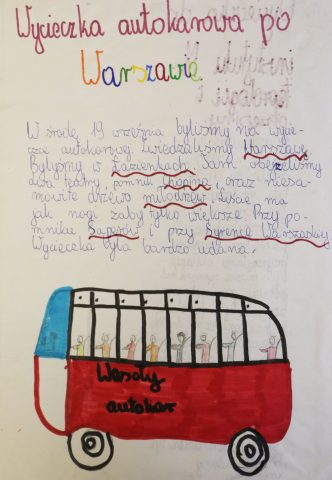 Wycieczka autokarowa po
Warszawie
W środę 19 września byliśmy na wycie-
czce autokarowej. Zwiedzaliśmy Warszawę.
Byliśmy w Łazienkach. Tam obejrzeliśmy
dwa teatry, pomnik Chopina, oraz niesa-
mowite drzewo miłorzew. Liście ma
jak nogi żaby tylko większe. Przy po-
mniku Saperów i przy Syrence Warszawskiej
Wycieczka była bardzo udana.
Wesoły
autokar